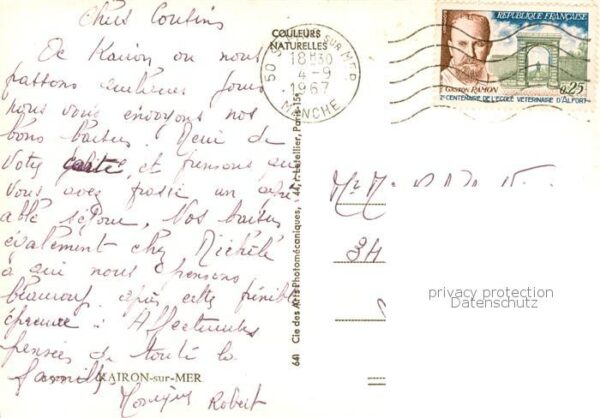 Chers Cousins
De Kairon où nous
passons quelques jours
nous vous envoyons nos
bons baisers. Merci de
votre carte, et pensons que
vous avez passé un agré
able séjour. Nos baisers
également chez Michèle
à qui nous pensons
beaucoup après cette pénible
épreuve. Affectueuses
pensées de toute la
famille
KAIRON-sur-MER
Monique Robert
COULEURS
NATURELLES
641 Cie des Arts Photomécaniques, 44, r. Letellier, Paris-15e
50 SUR MER
18H30
4-9
1967
MANCHE
REPUBLIQUE FRANÇAISE
0,25
GASTON RAMON
2e CENTENAIRE DE L'ECOLE VETERINAIRE D'ALFORT
privacy protection
Datenschutz